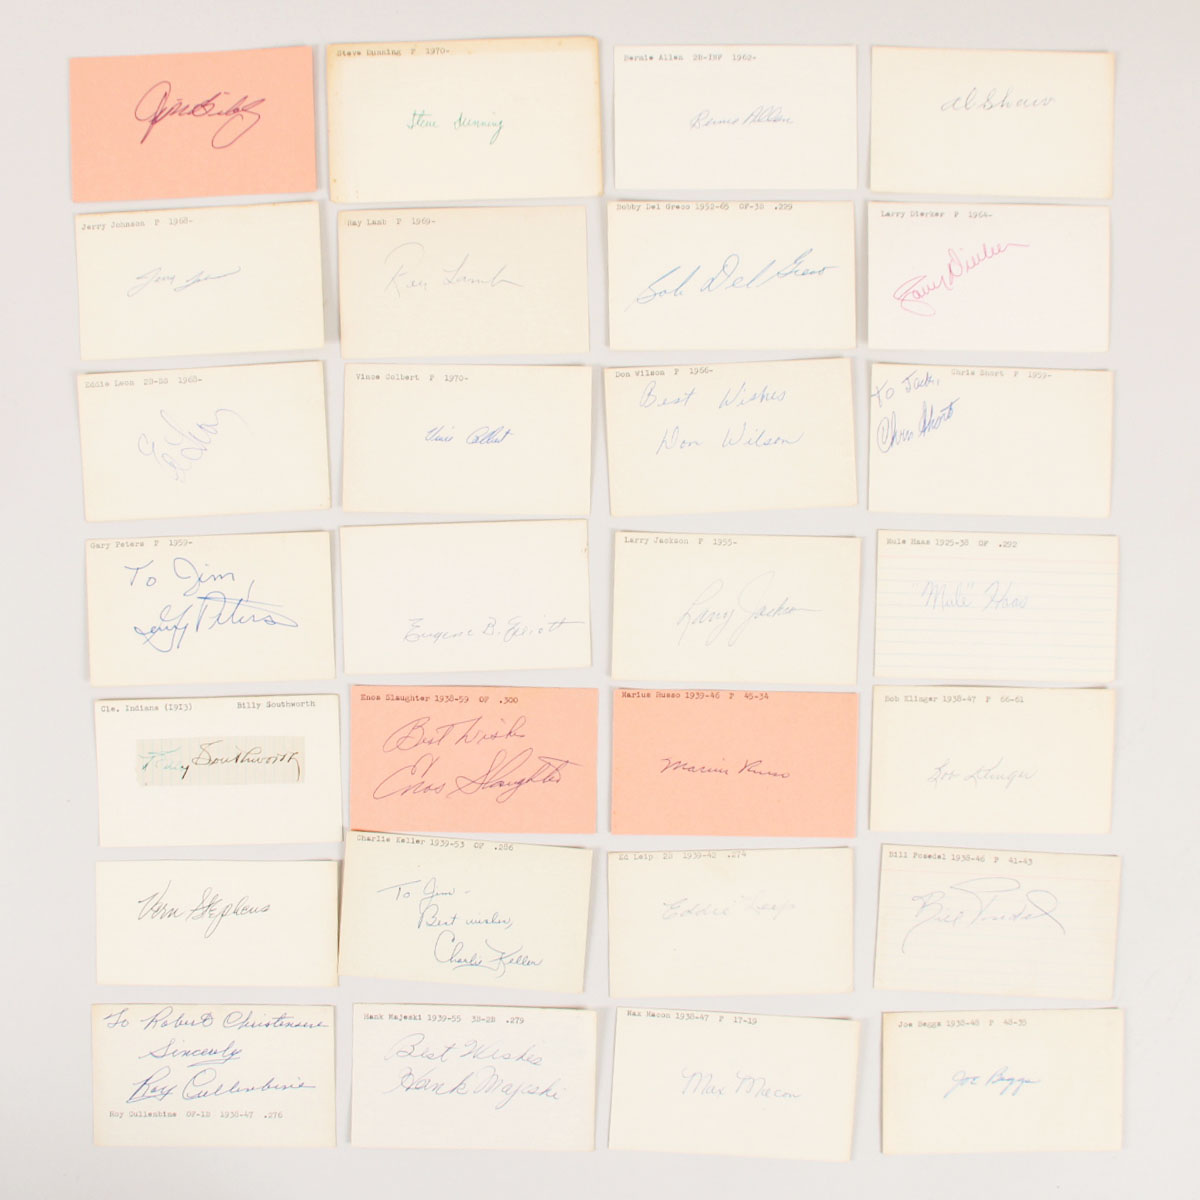 Steve Dunning P 1970-
Steve Dunning
Bernie Allen 2B-INF 1962-
Bernie Allen
Al Shaw
Jerry Johnson P 1968-
Jerry
Ray Lamb P 1969-
Ray Lamb
Bobby Del Greco 1952-65 OF-3B .229
Bob Del Greco
Larry Dierker P 1964-
Larry Dierker
Eddie Leon 2B-SS 1968-
Vince Colbert P 1970-
Vince Colbert
Don Wilson P 1966-
Best Wishes
Don Wilson
Chris Short P 1959-
To Jack,
Chris Short
Gary Peters P 1959-
To Jim,
Gary Peters
Eugene B. Elliott
Larry Jackson P 1955-
Larry Jackson
Mule Haas 1925-38 OF .292
"Mule" Haas
Cle. Indians (1913) Billy Southworth
Billy Southworth
Enos Slaughter 1938-59 OF .300
Best Wishes
Enos Slaughter
Marius Russo 1939-46 P 45-34
Marius Russo
Bob Klinger 1938-47 P 66-61
Bob Klinger
Vern Stephens
Charlie Keller 1939-53 OF .286
To Jim -
Best wishes,
Charlie Keller
Ed Leip 2B 1939-42 .274
"Eddie" Leip
Bill Posedel 1938-46 P 41-43
Bill Posedel
To Robert Christensen
Sincerely
Roy Cullenbine
Roy Cullenbine OF-1B 1938-47 .276
Hank Majeski 1939-55 3B-2B .279
Best Wishes
Hank Majeski
Max Macon 1938-47 P 17-19
Max Macon
Joe Beggs 1938-48 P 48-35
Joe Beggs